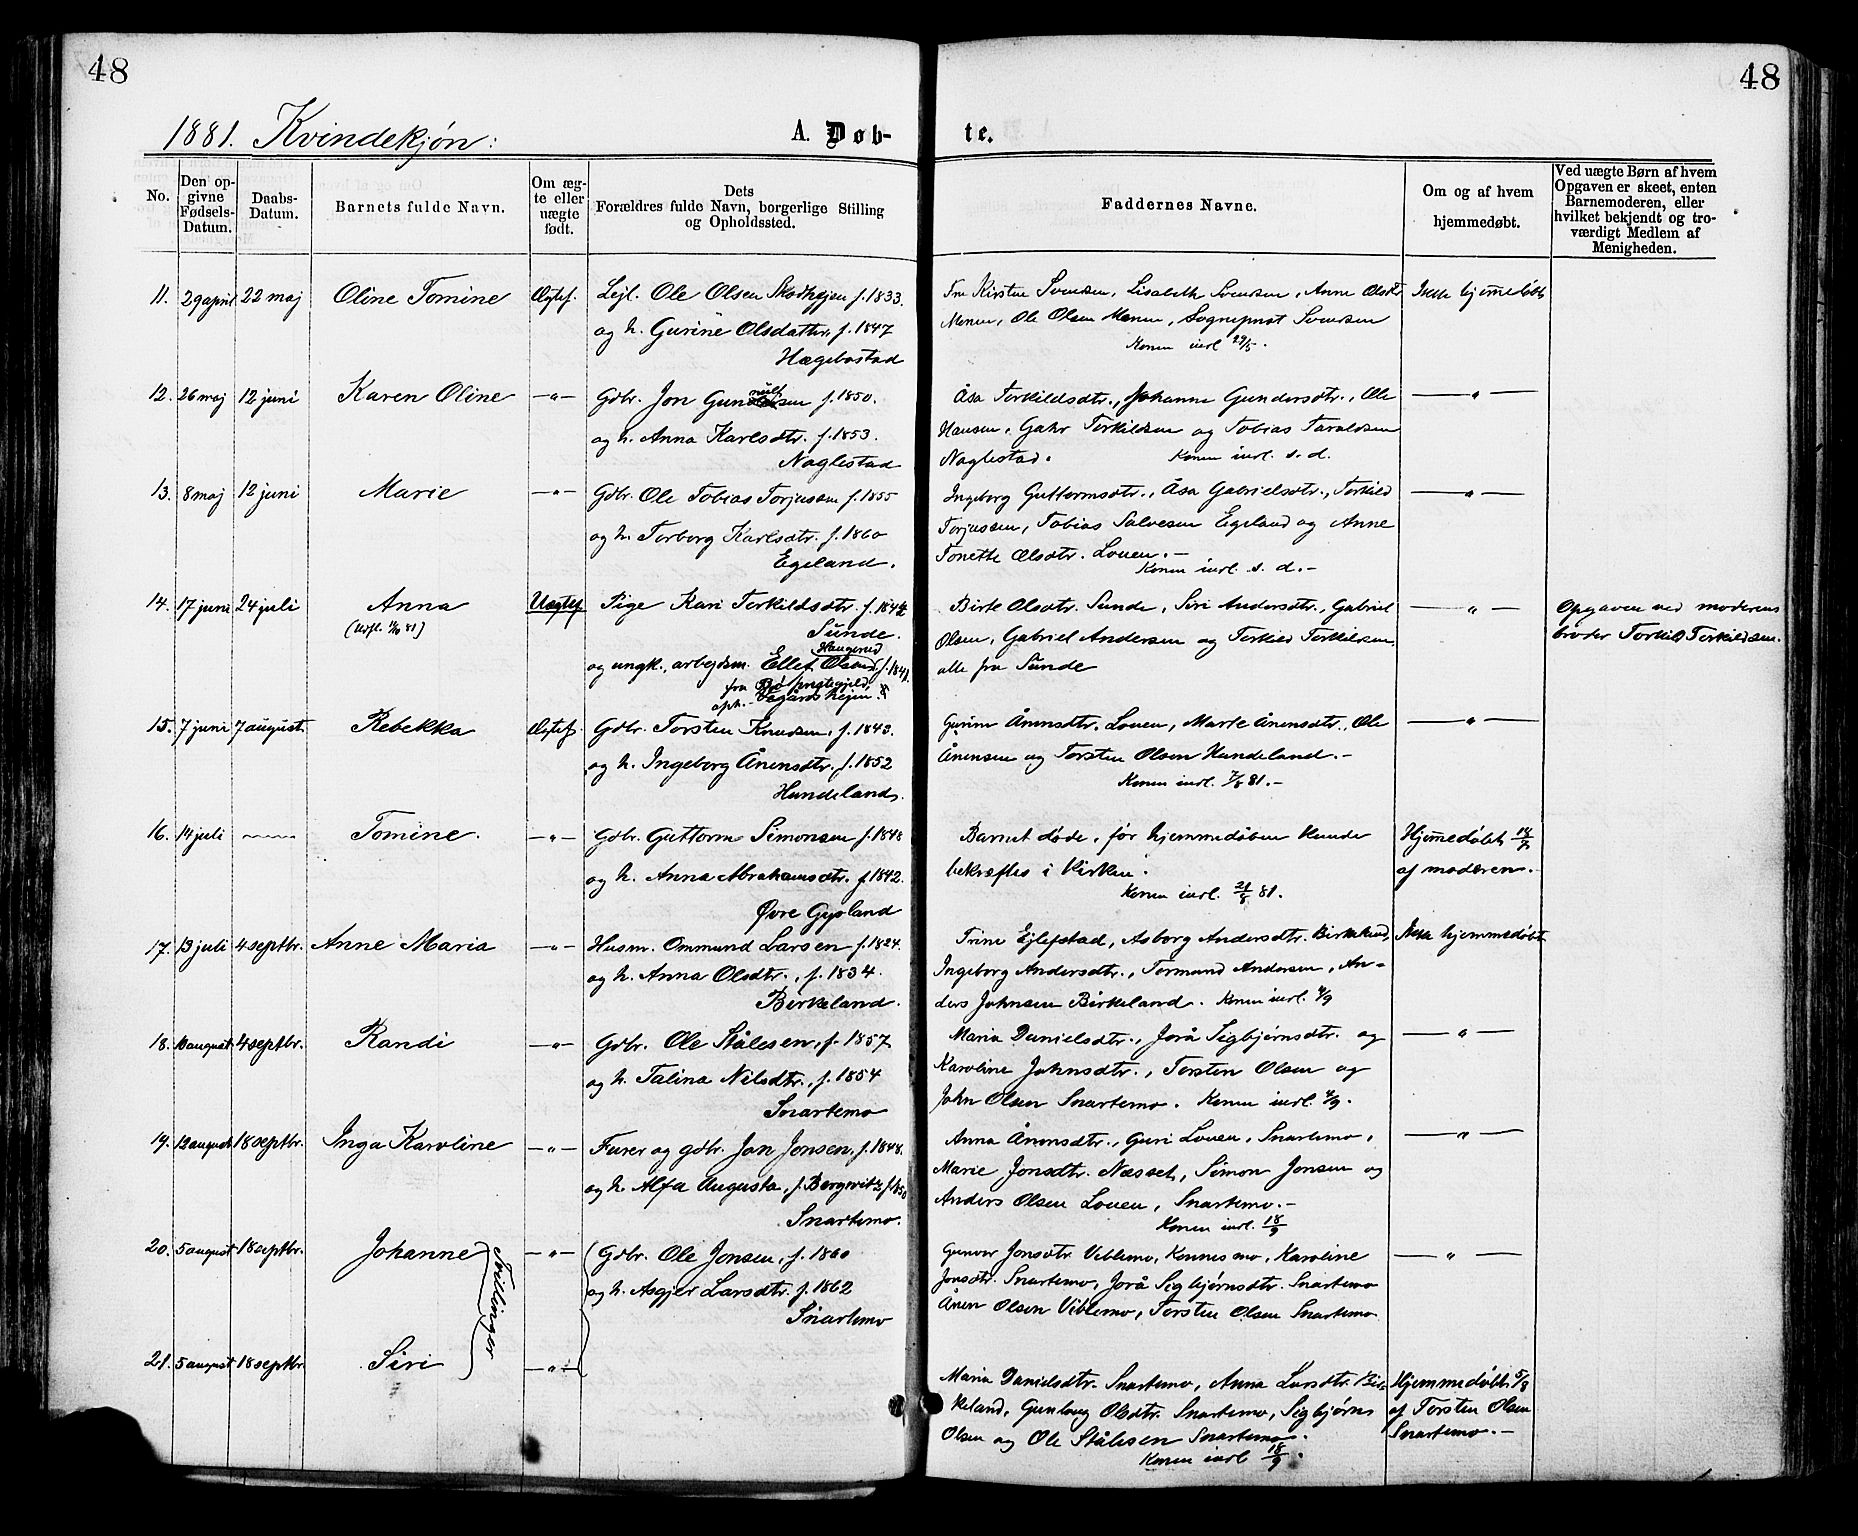 48
48
1881. Kvindekjøn:
A. Døb-
te.
No.
Den op-
givne
Fødsels-
Datum.
Daabs-
Datum.
Barnets fulde Navn.
Om æg-
te eller
uægte
født.
Dets
Forældres fulde Navn, borgerlige Stilling
og Opholdssted.
Faddernes Navne.
Om og af hvem
hjemmedøbt.
Ved uægte Børn af hvem
Opgaven er skeet, enten
Barnemoderen, eller
hvilket bekjendt og tro-
værdigt Medlem af
Menigheden.
11. 29 april 22 maj Oline Tomine Ægtef. Lejl. Ole Olsen f. 1833.
og h. Gurine Olsdatter, f. 1847
Hægebostad
Fru Kirsten Svendsen, Lisabeth Svendsen, Anne Olsdtr.
Ole Olsen Sogneprest Svendsen
Konen inrl. 29/5.
Ikke hjemmedøbt
12. 26 maj 12 juni Karen Oline —"— Gdbr. Jon f. 1850.
og h. Anna Karlsdtr. f. 1853.
Naglestad
Åsa Torkildsdtr., Johanne Gundersdtr., Ole
Hansen, Torkildsen og Tobias Taraldsen
Naglestad. Konen inrl. s. d.
—"—
13. 8 maj 12 juni Marie —"— Gdbr. Ole Tobias Torjussen f. 1855
og h. Torborg Karlsdtr. f. 1860
Egeland.
Ingeborg Guttormsdtr., Åsa Gabrielsdtr., Torkild
Torjussen, Tobias Salvesen Egeland og Anne
Tonette Olsdtr. Louen.-
Konen inrl. s. d.-
—"—
14. 17 juni 24 juli Anna Uægtef. Pige Kari Torkildsdtr. f. 1844
Sunde.
og ungk. arbejdsm. Ellef Olsen
Haugerud
fra Bø prestegjeld,
oph.
Birte Olsdtr. Sunde, Siri Andersdtr., Gabriel
Olsen, Gabriel Andersen og Torkild Torkildsen,
alle fra Sunde
—"—
Opgaven ved moderens
broder Torkild Torkildsen.
15. 7 juni 7 august Rebekka Ægtef. Gdbr. Torsten Knudsen, f. 1843.
og h. Ingeborg Ånensdtr. f. 1852
Hundeland.
Gurine Ånensdtr. Louen, Marte Ånensdtr., Ole
Ånensen og Torsten Olsen Hundeland.-
Konen inrl. 7/8 81.-
—"—
16. 14 juli Tomine. —"— Gdbr. Guttorm Simonsen f. 1848
og h. Anna Abrahamsdtr. f. 1842.
Øvre Gysland
Barnet døde, før hjemmedåben kunde
bekræftes i Kirken.
Konen inrl. 21/8 81.
Hjemmedøbt
af moderen.
17. 13 juli 4 septbr. Anne Maria —"— Husm. Ommund Larsen f. 1824.
og h. Anna Olsdtr., f. 1834.
Birkeland.
Trine Ejlefstad, Asborg Andersdtr. Birkeland,
Ingeborg Andersdtr., Tormund Andersen, An-
ders Johnsen Birkeland. Konen inrl. 4/9
Ikke hjemmedøbt
18. august 4 septbr. Randi —"— Gdbr. Ole Stålesen, f. 1857.
og h. Talina Nilsdtr., f. 1854
Snartemo
Maria Danielsdtr., Jorå Sigbjørnsdtr. og
Karoline Johnsdtr., Torsten Olsen og
John Olsen Snartemo. Konen inrl. 4/9.
—"—
19. 12 august 18 septbr. Inga Karoline —"— Furer og gdbr. Jon Jonsen, f. 1848.
og h. Alfa Augusta, f. Bergwitz f. 1850
Snartemo.
Anna Ånensdtr., Guri Louen, Snartemo,
Marie Jonsdtr. Næsset, Simon Jonsen og
Anders Olsen Louen, Snartemo.-
Konen inrl. 18/9
—"—
20. 5 august 18 septbr. Johanne —"— Gdbr. Ole Jonsen, f. 1860
og h. Asgjer Larsdtr. f. 1862
Snartemo
Tvillinger
Gunvor Jonsdtr. Viblemo, Konnesmo, Karoline
Jonsdtr. Snartemo, Jorå Sigbjørnsdtr. Snartemo
Ånen Olsen Viblemo, Torsten Olsen Snartemo
—"—
21. 5 august 18 septbr. Siri —"—
Maria Danielsdtr. Snartemo, Anna Larsdtr. Bir-
keland, Gunlaug Olsdtr. Snartemo, Sigbjørn
Olsen og Ole Stålesen Snartemo.
Konen inrl. 18/9.
Hjemmedøbt 5/8
af Torsten Olsen
Snartemo.-